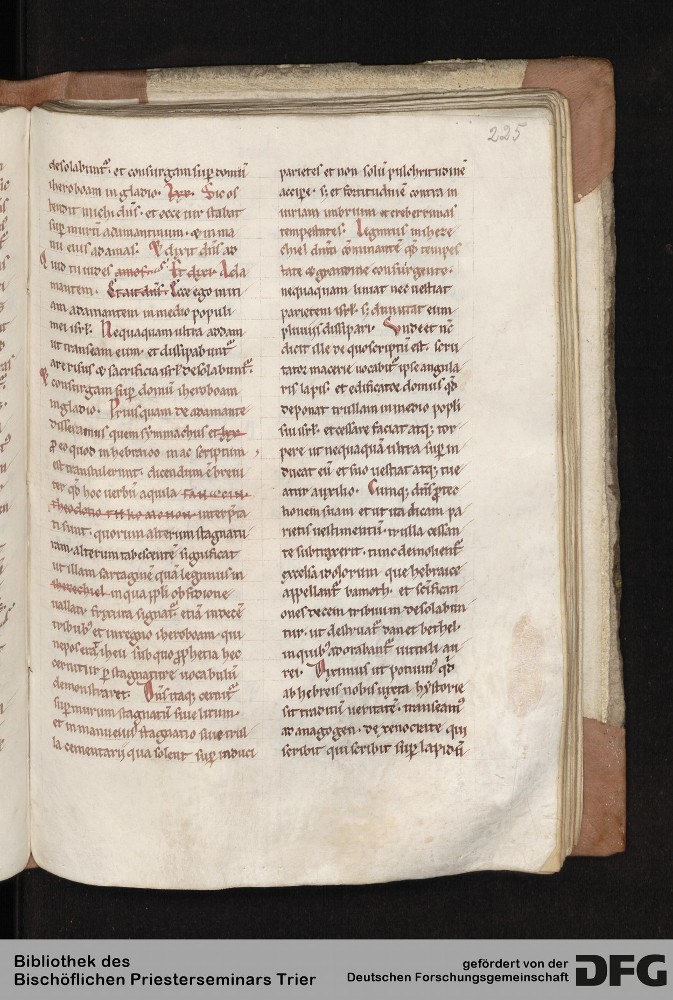 225
desolabunt᷒. et consurgam sup̄ domū
iheroboam in gladio. Lxx. Sic os
tendit michi dn̄s. et ecce uir stabat
sup̄ murū adamantinum. & in ma
nu eius adamas. Et dixit dn̄s ad
me quid tu uides amos. Et dixi. Ada
mantem. Et ait dn̄s. Ecce ego mitti
am adamantem in medio populi
mei isrl. Nequaquam ultra addam
ut transeam eum. et dissipabunt᷒
are risus & sacrificia isrl desolabunt᷒.
Et consurgam sup̄ domū iheroboam
in gladio. Priusquam de adamante
disseramus quem symmachus et lxx
ꝑ eo quod in hebraico
est transtulerunt. dicendum ē breui
ter qd̄ hoc uerbū aquila
theodotio interp̄ta
ti sunt. quorum alterum stagnatu
ram. alterum tabescentē significat
ut illam sartaginē quā legimus in
ihezechiel in qua ppli obsidione
uallati. frixura signat᷒. etiā in decē
tribub᷒ et in regno iheroboam. qui
nepos erat iheu sub quo ꝓphetia hec
cernitur ꝑ stagnature uocabulū
demonstraret. Dn̄s itaq; cernit᷒
sup̄ murum stagnatū siue litum.
et in manu eius stagnatio siue trul
la cementarij qua solent sup̄ induci
parietes et non solū pulchritudinē
accipe. s; et fortitudinē contra in
iuriam imbrium et creberrimas
tempestates. Legimus in ihere
chiel dn̄m cōminantē qd̄ tempes
tate & grandine consurgente.
nequaquam liniat nec uestiat
parietem isrl. s; dimittat eum
pluuiis dissipari. Vnde et nc̄
dicit ille de quo scriptū est. scru
tator macerie uocabit᷒ ipse angula
ris lapis. et edificator domus qd̄
deponat trullam in medio popli
sui isrl. et cessare faciat atq; tor
pere ut nequaquā ultra sup̄ in
ducat eū et suo uestiat atq; tue
atur auxilio. Cumq; dn̄s ꝓtec
tionem suam et ut ita dicam pa
rietis uestimentū trulla cessan
te subtraxerit. tunc demolient᷒
excelsa idolorum. que hebraice
appellant᷒ bamoth. et scificati
ones decem tribuum desolabun
tur. ut destruat᷒ dan et bethel.
in quib᷒ adorabant᷒ uituli au
rei. Diximus ut potuim᷒ qd̄
ab hebreis nobis iuxta hystorie
sit traditū ueritatē. transeam᷒
ad anagogen. de xenocrate qui
scribit qui scribit sup̄ lapidū
Bibliothek des
Bischöflichen Priesterseminars Trier
gefördert von der
Deutschen Forschungsgemeinschaft
DFG